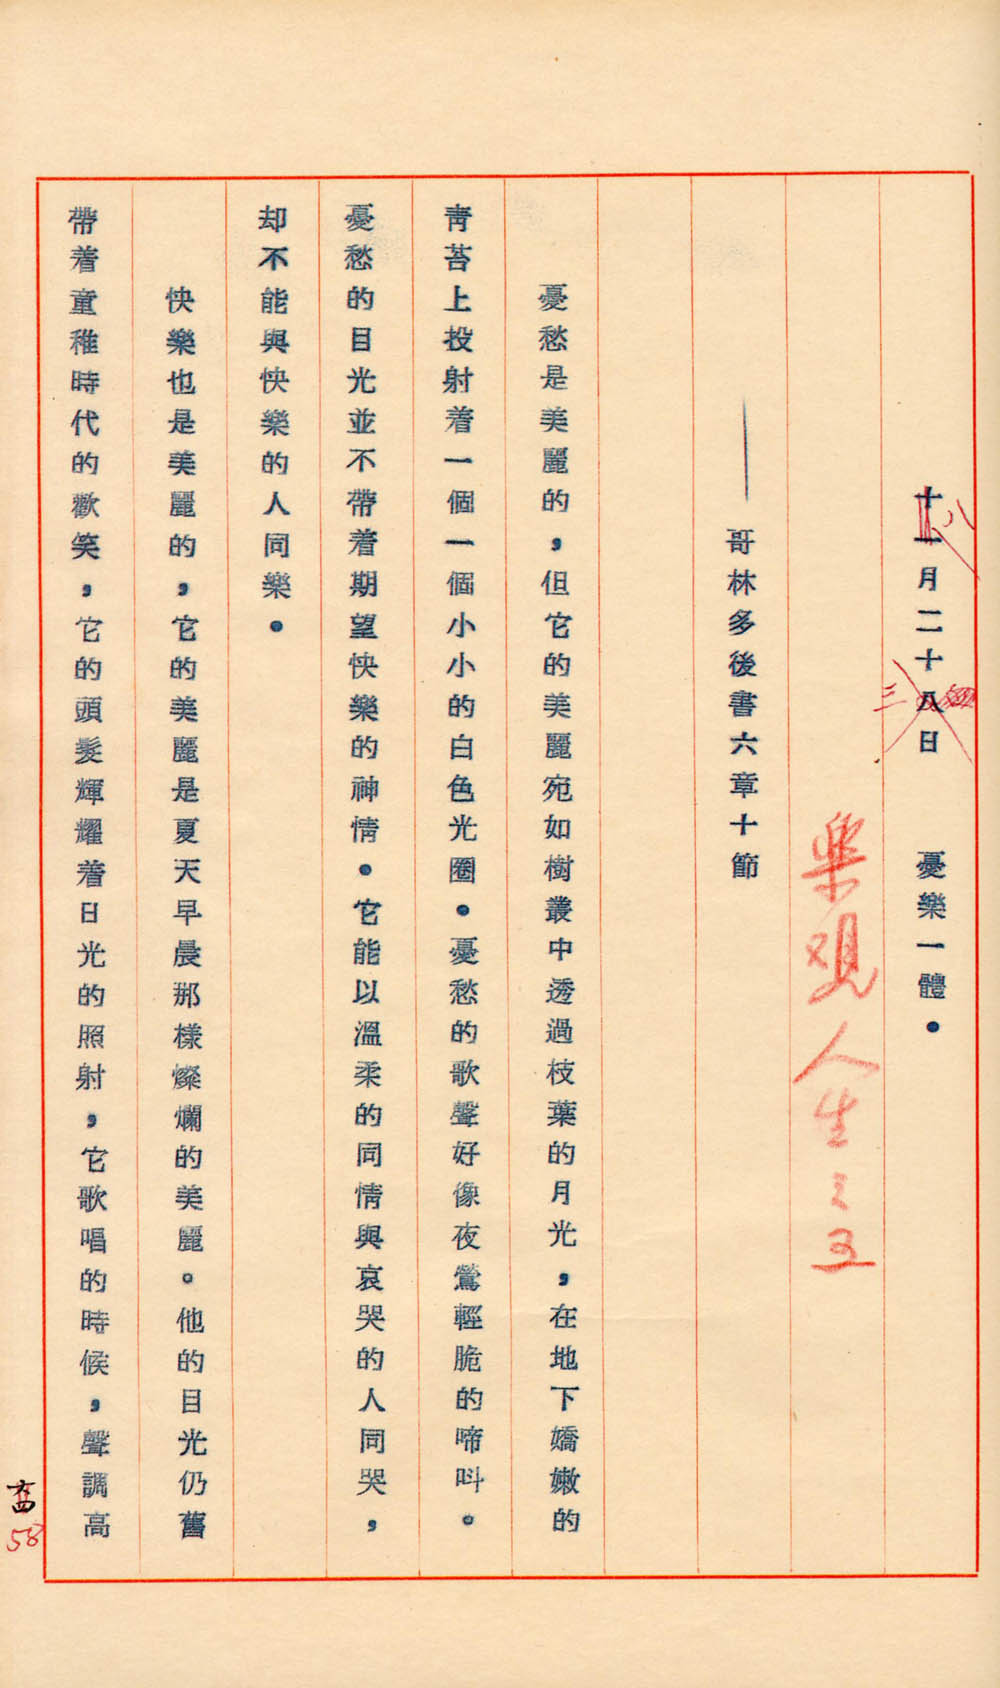 十一月二十八日　憂樂一體。
八
三
樂观人生之五
——哥林多後書六章十節
憂愁是美麗的，但它的美麗宛如樹叢中透過枝葉的月光，在地下嬌嫩的
青苔上投射着一個一個小小的白色光圈。憂愁的歌聲好像夜鶯輕脆的啼叫。
憂愁的目光並不帶着期望快樂的神情。它能以溫柔的同情與哀哭的人同哭，
却不能與快樂的人同樂。
快樂也是美麗的，它的美麗是夏天早晨那樣燦爛的美麗。他的目光仍舊
帶着童稚時代的歡笑，它的頭髮輝耀着日光的照射，它歌唱的時候，聲調高
58